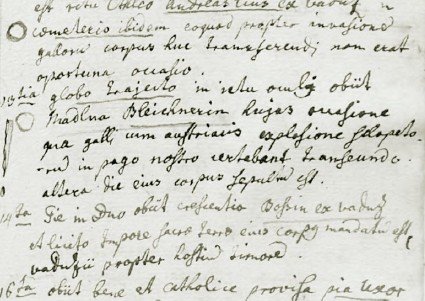 est ritu Ctalco Andreas Eius ex vaduz in
coemeterio ibidem eoquod propter invasione
gallorũ corpus huc transferendi non erat
oportuna occasio.
13tia globo trajecto in ictu oculi obiit
Madlna Bleichnerin hujas occasione
qua galli cum austriacis explosione sclopeto-
rũ in pago nostro certebant transeundo.
altera die ejus corpus sepultũ est.
14ta Pie in Dno obiit crescentia Bossin ex vaduz
et licito tempore sacrae terrae eius corpus mandatũ est
vaduzii propter hostiũ timorẽ.
16ta obiit bene et catholice provisa pia uxor